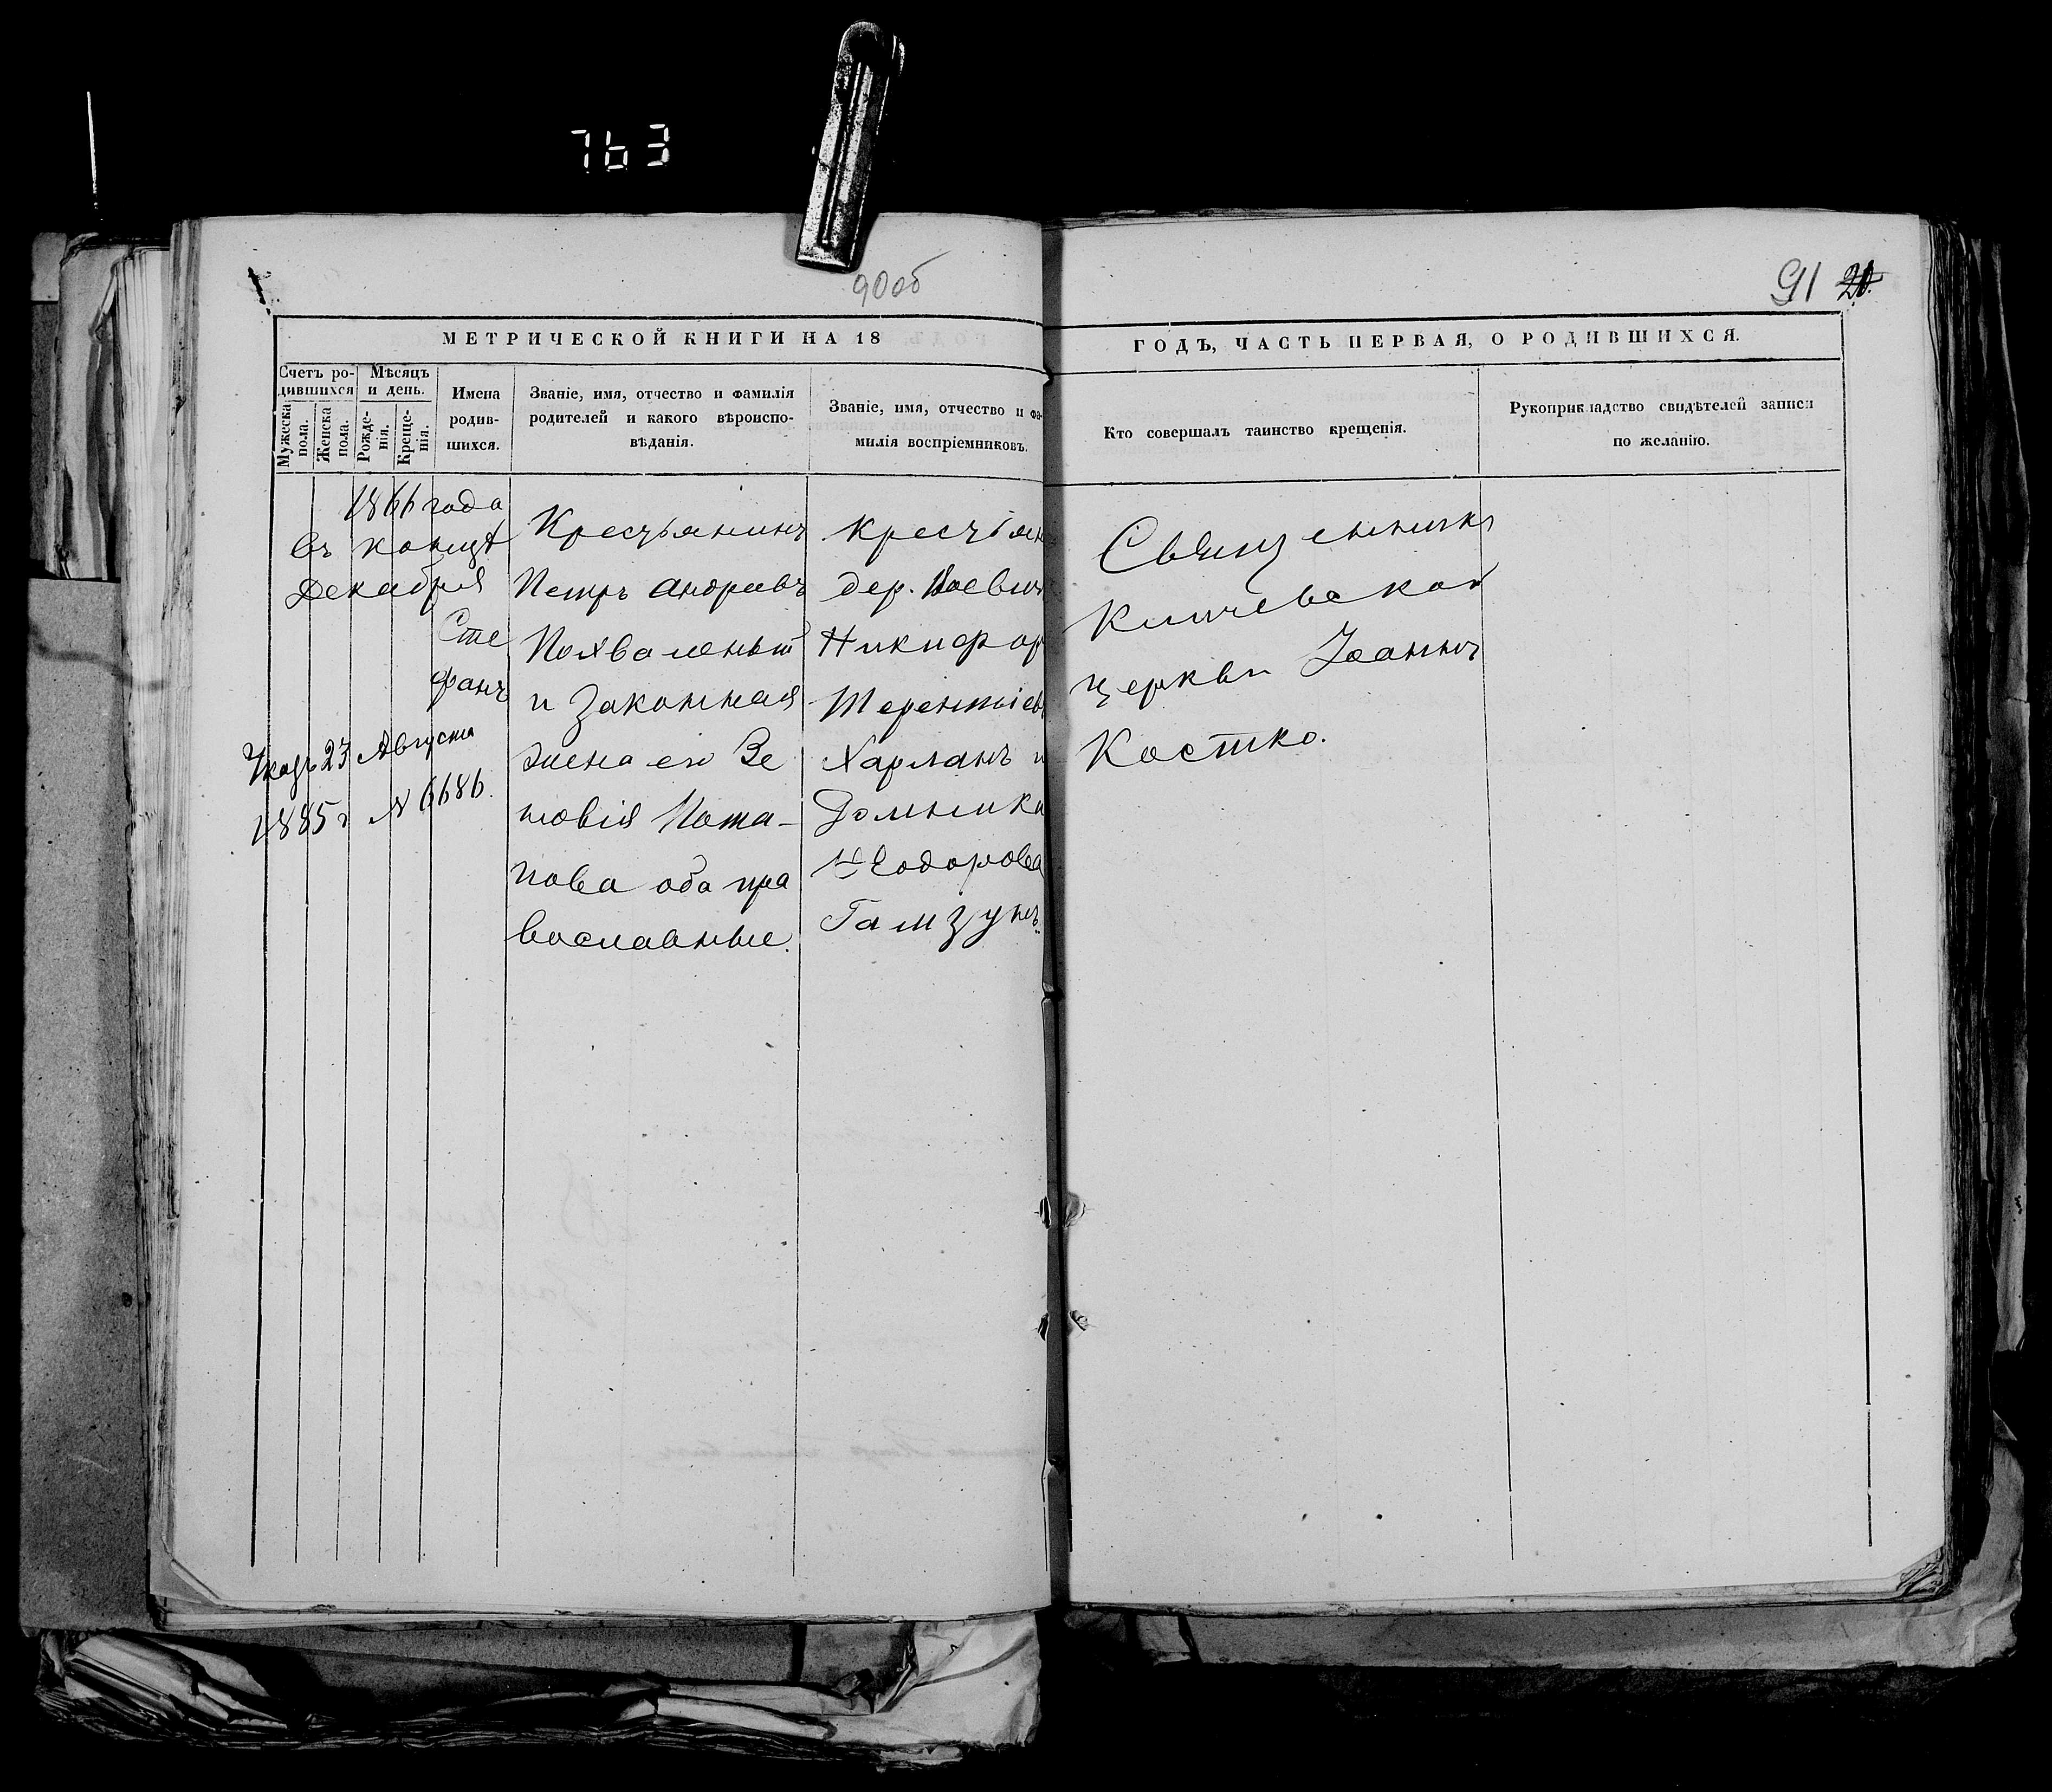 763
90об
91 20.
МЕТРИЧЕСКОЙ КНИГИ НА 18
ГОДЪ, ЧАСТЬ ПЕРВАЯ, О РОДИВШИХСЯ.
Счетъ ро-
дившихся
Мужеска
пола.
Женска
пола.
Мѣсяцъ
и день.
Рожде-
нія.
Креще-
нія.
Имена
родив-
шихся.
Званіе, имя, отчество и фамилія
родителей и какого вѣроиспо-
вѣданія.
Званіе, имя, отчество и фа-
милія воспріемниковъ.
Кто совершалъ таинство крещенія.
Рукоприкладство свидѣтелей записи
по желанію.
1866 года
въ концѣ
Декабря
Сте
фанъ
Указъ 23 Августа
1885 г № 6686.
Крестьянинъ
Петръ Андреевъ
Похваленый
и Законная
жена его Зе
новія Пота-
пова оба пра
вославные.
крестьян
дер.
Никифор
Терентіев
Харланъ и
Домника
Ѳеодорова
Гамзунъ.
Священникъ
церкви Іоаннъ
Костко.